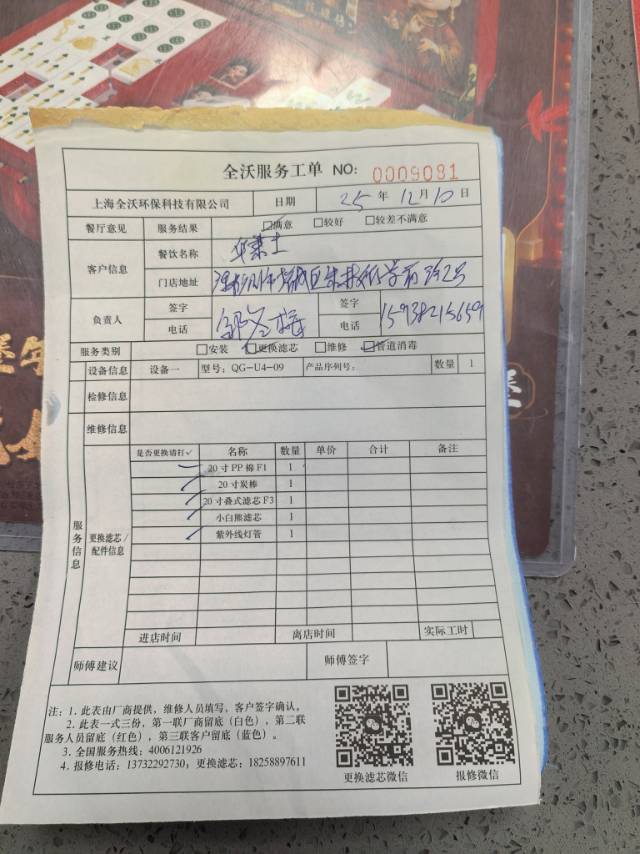 全沃服务工单 NO: 0009081
上海全沃环保科技有限公司 日期 25 年 12 月 10 日
餐厅意见 服务结果 □满意 □较好 □较差不满意
客户信息 餐饮名称 华莱士
门店地址
负责人 签字 签字
电话 电话 15938215659
服务类别 □安装 □更换滤芯 □维修 □管道消毒
设备信息 设备一 型号: QG-U4-09 产品序列号: 数量 1
检修信息
维修信息
服务信息 更换滤芯/配件信息 是否更换请打✓ 名称 数量 单价 合计 备注
✓ 20寸PP棉F1 1
✓ 20寸炭棒 1
✓ 20寸叠式滤芯F3 1
✓ 小白熊滤芯 1
✓ 紫外线灯管 1
进店时间 离店时间 实际工时
师傅建议 师傅签字
注: 1. 此表由厂商提供, 维修人员填写, 客户签字确认。
2. 此表一式三份, 第一联厂商留底 (白色), 第二联
服务人员留底 (红色), 第三联客户留底 (蓝色)。
3. 全国服务热线: 4006121926
4. 报修电话: 13732292730, 更换滤芯: 18258897611
更换滤芯微信 报修微信